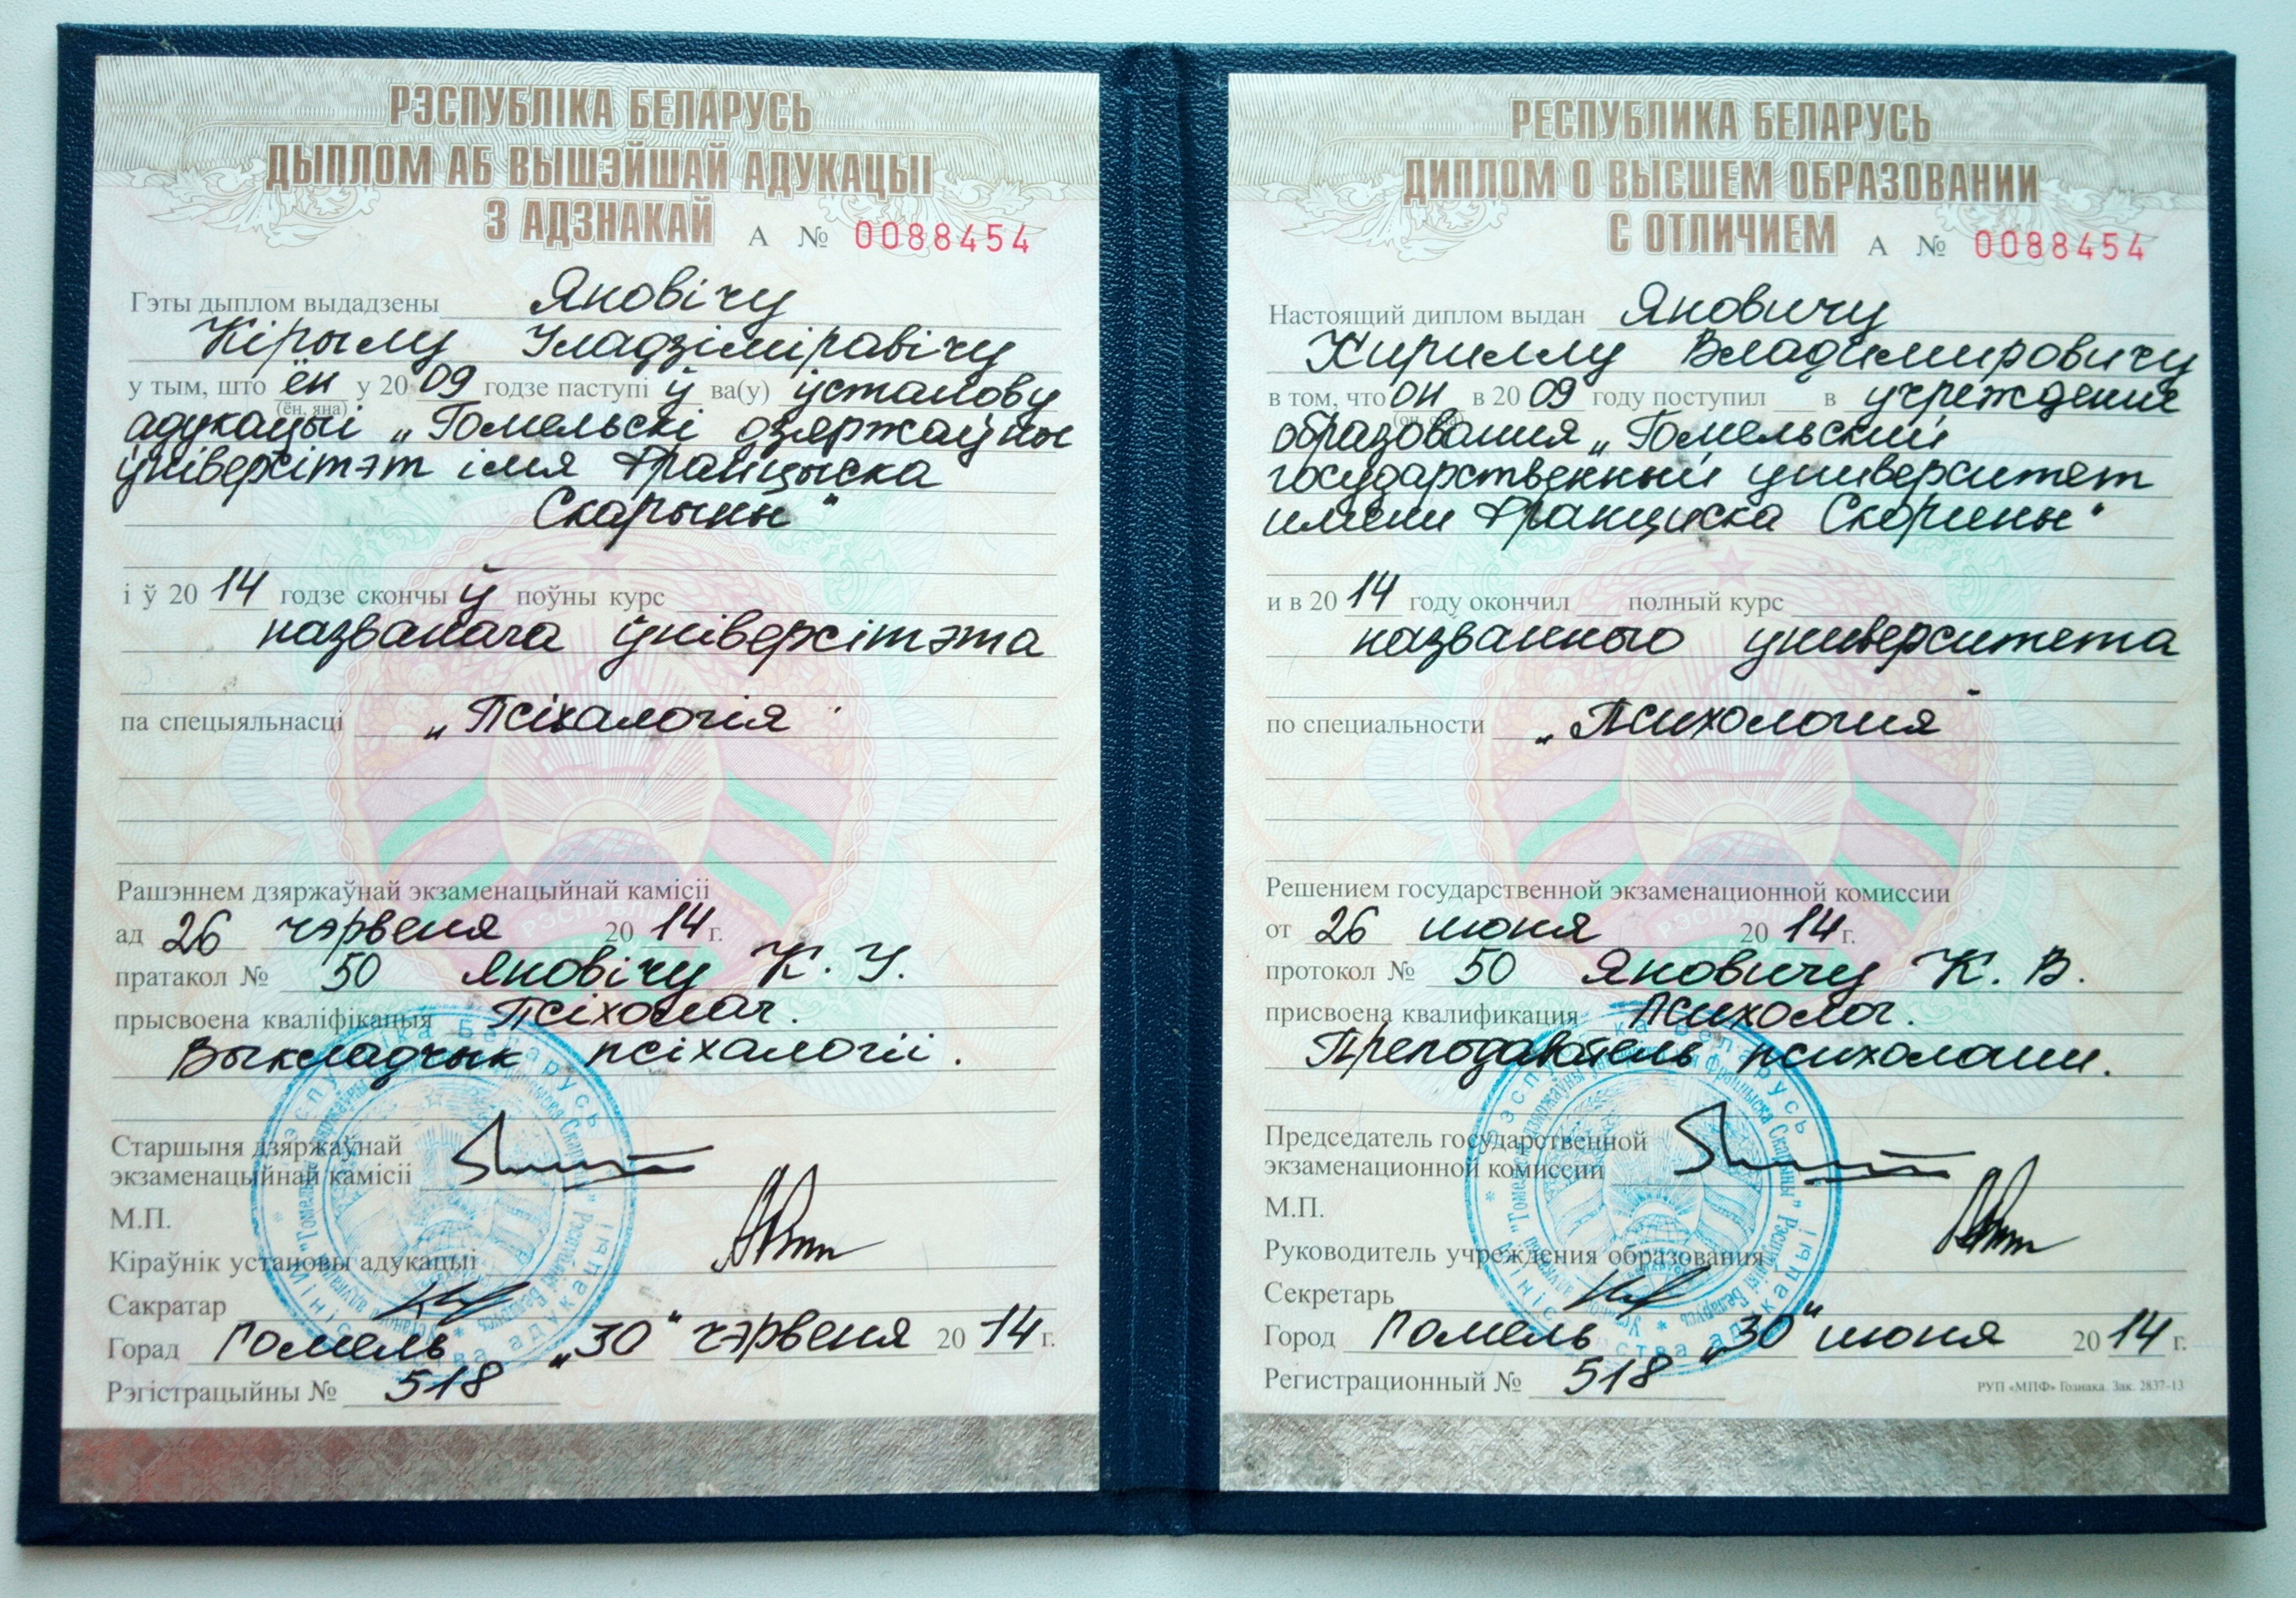 РЭСПУБЛІКА БЕЛАРУСЬ
ДЫПЛОМ АБ ВЫШЭЙШАЙ АДУКАЦЫІ
З АДЗНАКАЙ А № 0088454
Гэты дыплом выдадзены Яновічу
Кірылу Уладзіміравічу
у тым, што ён у 2009 годзе паступіў ва(у) ўстанову
(ён, яна)
адукацыі „Гомельскі дзяржаўны
ўніверсітэт імя Францыска
Скарыны"
і ў 2014 годзе скончыў поўны курс
названага ўніверсітэта
па спецыяльнасці „Псіхалогія"
Рашэннем дзяржаўнай экзаменацыйнай камісіі
ад 26 чэрвеня 2014 г.
пратакол № 50 Яновічу К. У.
прысвоена кваліфікацыя Псіхолаг.
Выкладчык псіхалогіі.
Старшыня дзяржаўнай
экзаменацыйнай камісіі
М.П.
Кіраўнік установы адукацыі
Сакратар
Горад Гомель „30" чэрвеня 2014 г.
Рэгістрацыйны № 518
РЕСПУБЛИКА БЕЛАРУСЬ
ДИПЛОМ О ВЫСШЕМ ОБРАЗОВАНИИ
С ОТЛИЧИЕМ А № 0088454
Настоящий диплом выдан Яновичу
Кириллу Владимировичу
в том, что он в 2009 году поступил в учреждение
(он, она)
образования „Гомельский
государственный университет
имени Франциска Скорины"
и в 2014 году окончил полный курс
названного университета
по специальности „Психология"
Решением государственной экзаменационной комиссии
от 26 июня 2014 г.
протокол № 50 Яновичу К. В.
присвоена квалификация Психолог.
Преподаватель психологии.
Председатель государственной
экзаменационной комиссии
М.П.
Руководитель учреждения образования
Секретарь
Город Гомель „30" июня 2014 г.
Регистрационный № 518
РУП «МПФ» Гознака. Зак. 2837-13